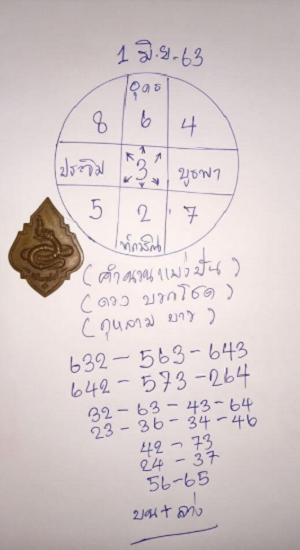 1 มิ.ย.63
อุดร
8 6 4
ประจิม 3 บูรพา
5 2 7
ทักษิณ
(คำนวนแม่งปั่น)
(ดวง บอกโชค)
(กุหลาบ ขาว)
632-563-643
642-573-264
32-63-43-64
23-36-34-46
42-73
24-37
56-65
บน+ล่าง